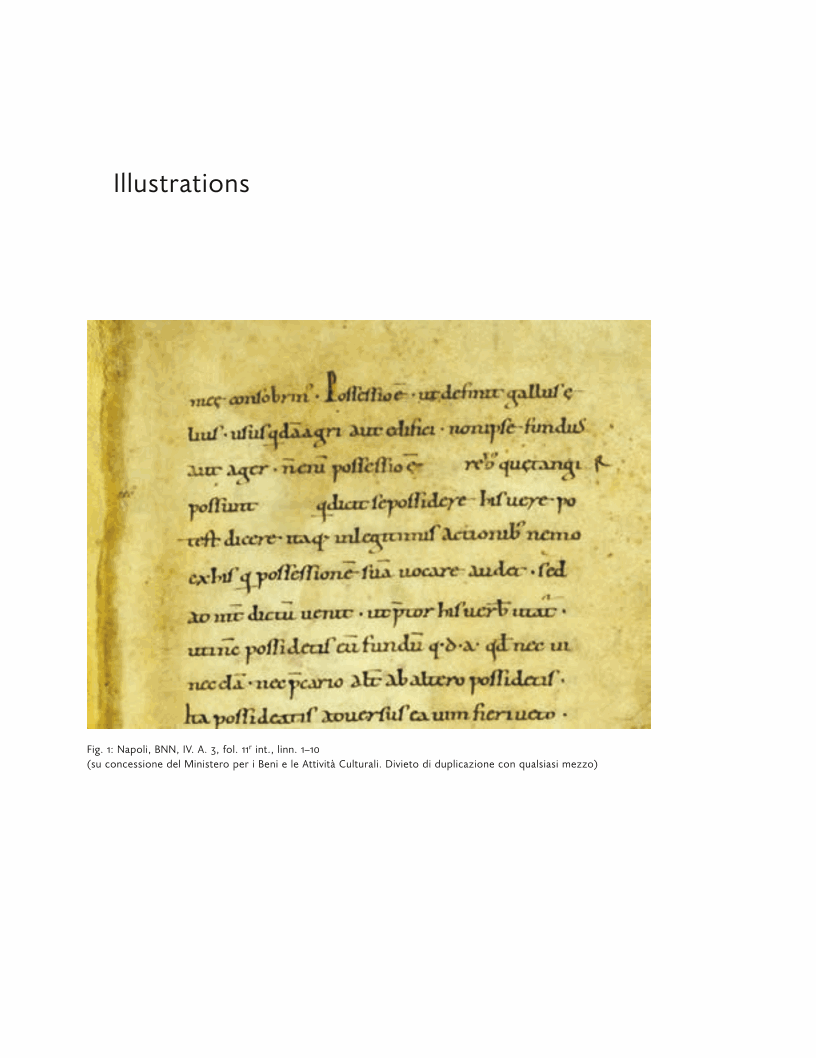 Illustrations
męę consobrin⁹ · Possessio ē · ut definit gallus ę
lius · usus qdā agri aut ędifici · non ipse fundus
aut ager · n̄ enī possessio ē reb⁹ quę tangi
possunt qdicit se possidere his uere po
test dicere · itaq· in legitimis actionib⁹ nemo
ex his q possessionē suā uocare audet · sed
ad int̄dictū uenit · ut p̄tor his uerb̄ utat̄ ·
uti nc̄ possidetis eū fundū q·d·a· qd̄ nec ui
nec clā · nec p̄cario alt̄ ab altero possidetis ·
ita possideatis aduersus ea uim fieri ueto ·
Fig. 1: Napoli, BNN, IV. A. 3, fol. 11r int., linn. 1–10
(su concessione del Ministero per i Beni e le Attività Culturali. Divieto di duplicazione con qualsiasi mezzo)